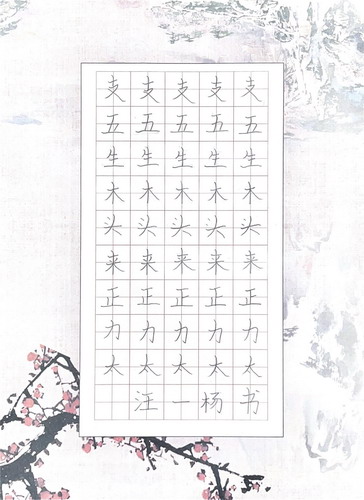 支支支支支
五五五五五
生生生生生
木木木木木
头头头头头
来来来来来
正正正正正
力力力力力
太太太太太
汪一杨书